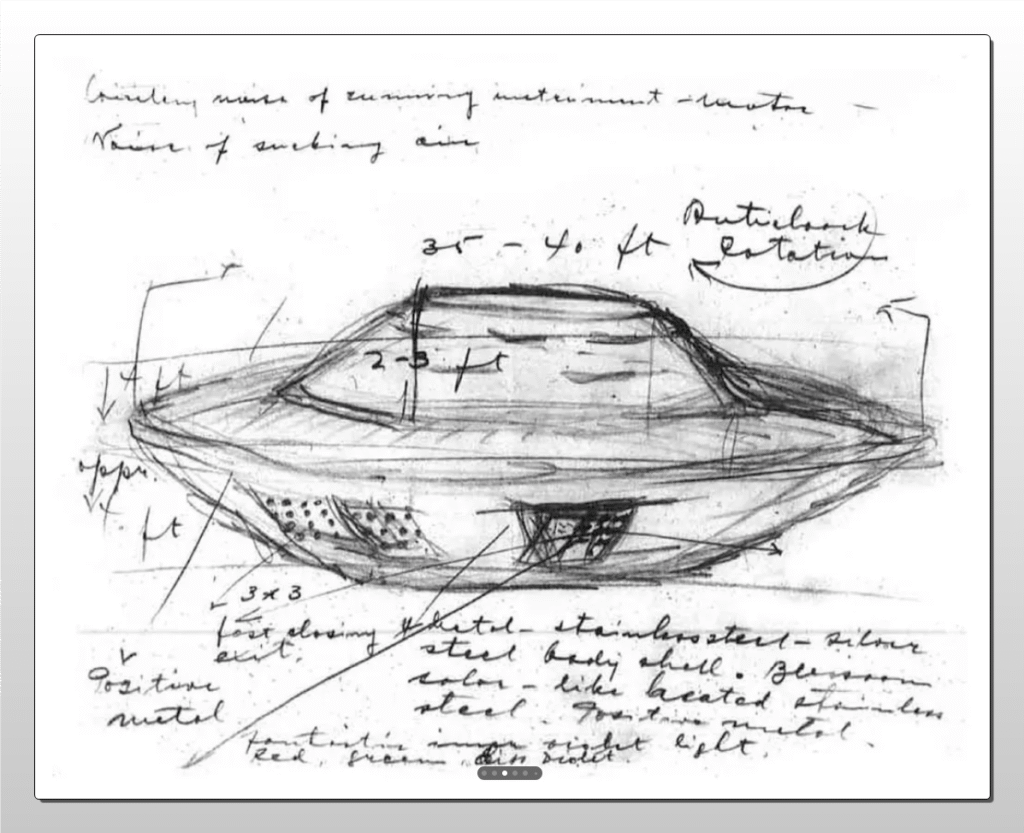 noise of running instrument - motor -
Noise of sucking air
Anticlock
35 - 40 ft
Rotation
2-3 ft
4 ft
appr.
4. ft
3x3
fast closing
exit.
Metal - stainless steel - silver
steel body shell.
color - like heated stainless
steel. Positive metal.
Positive
metal
fantastic inner violet light.
Red, green, violet.